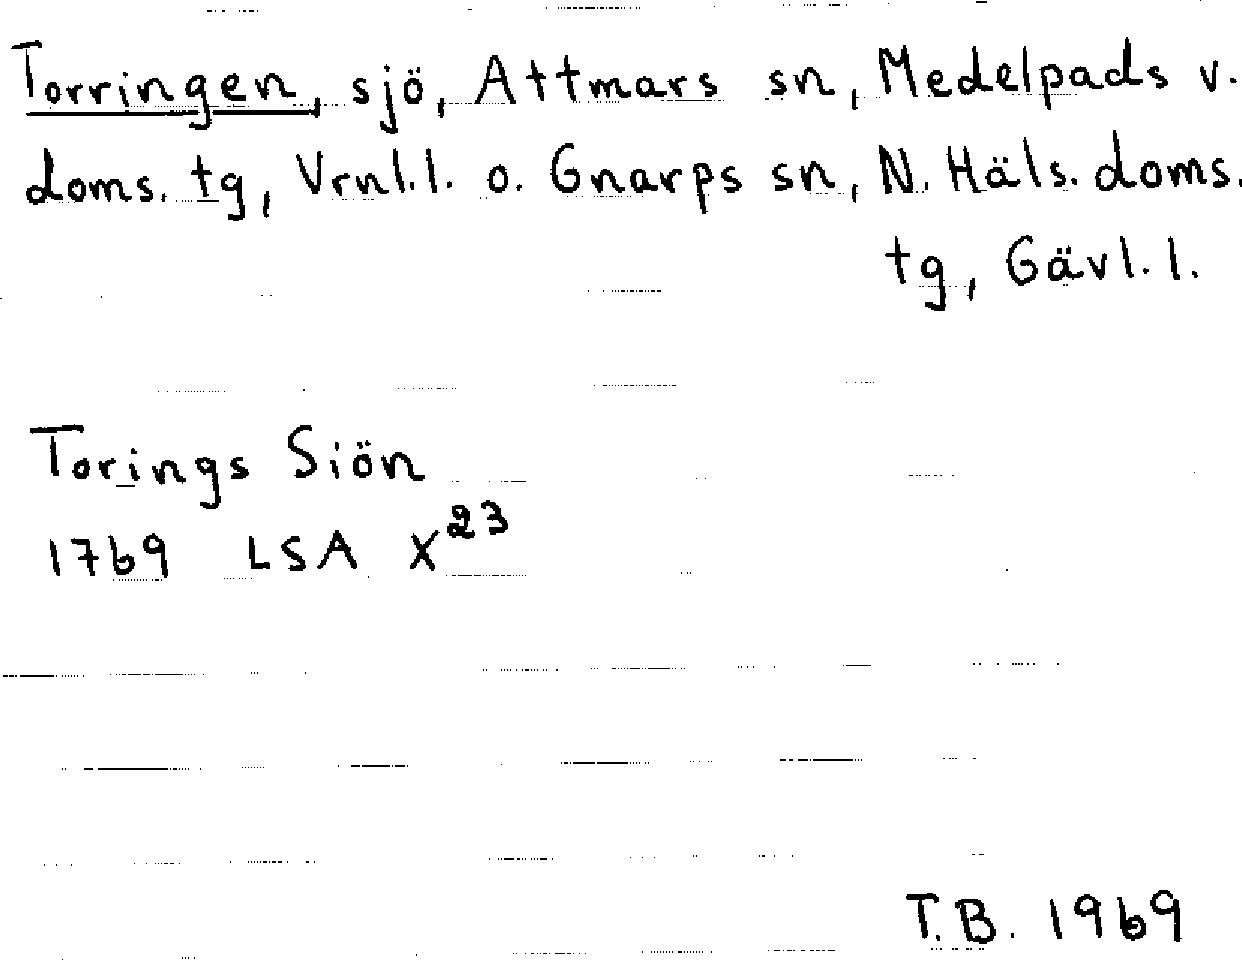 Torringen, sjö, Attmars sn, Medelpads v.
doms. tg, Vrnl.l. o. Gnarps sn, N. Häls. doms.
tg, Gävl.l.
Torings Siön
1769 LSA X²³
T.B. 1969